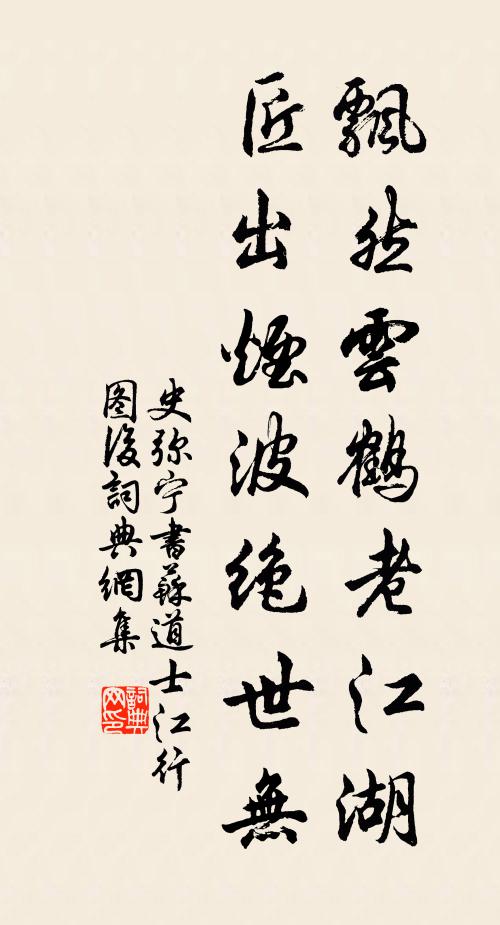 飄然雲鶴老江湖
匠出煙波絶世無
史弥宁書蘇道士江行
图後詞典網集
詞典
网印